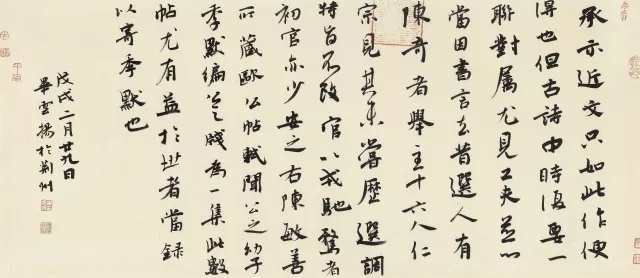 承示近文只如此作便
得也但古詩中時復要一
聯對属尤見工夫並以
當因書言去昔選人有
陳奇者舉主十六人仁
宗見其未嘗歷選調
特旨不改官以戒馳騖者
初官亦少安之右陳敏善
所藏歐公帖軾聞公之幼子
季默編公牋為一集此數
帖尤有益於世者當録
以寄季默也
戊戌二月廿九日
畢雲揚於荊州